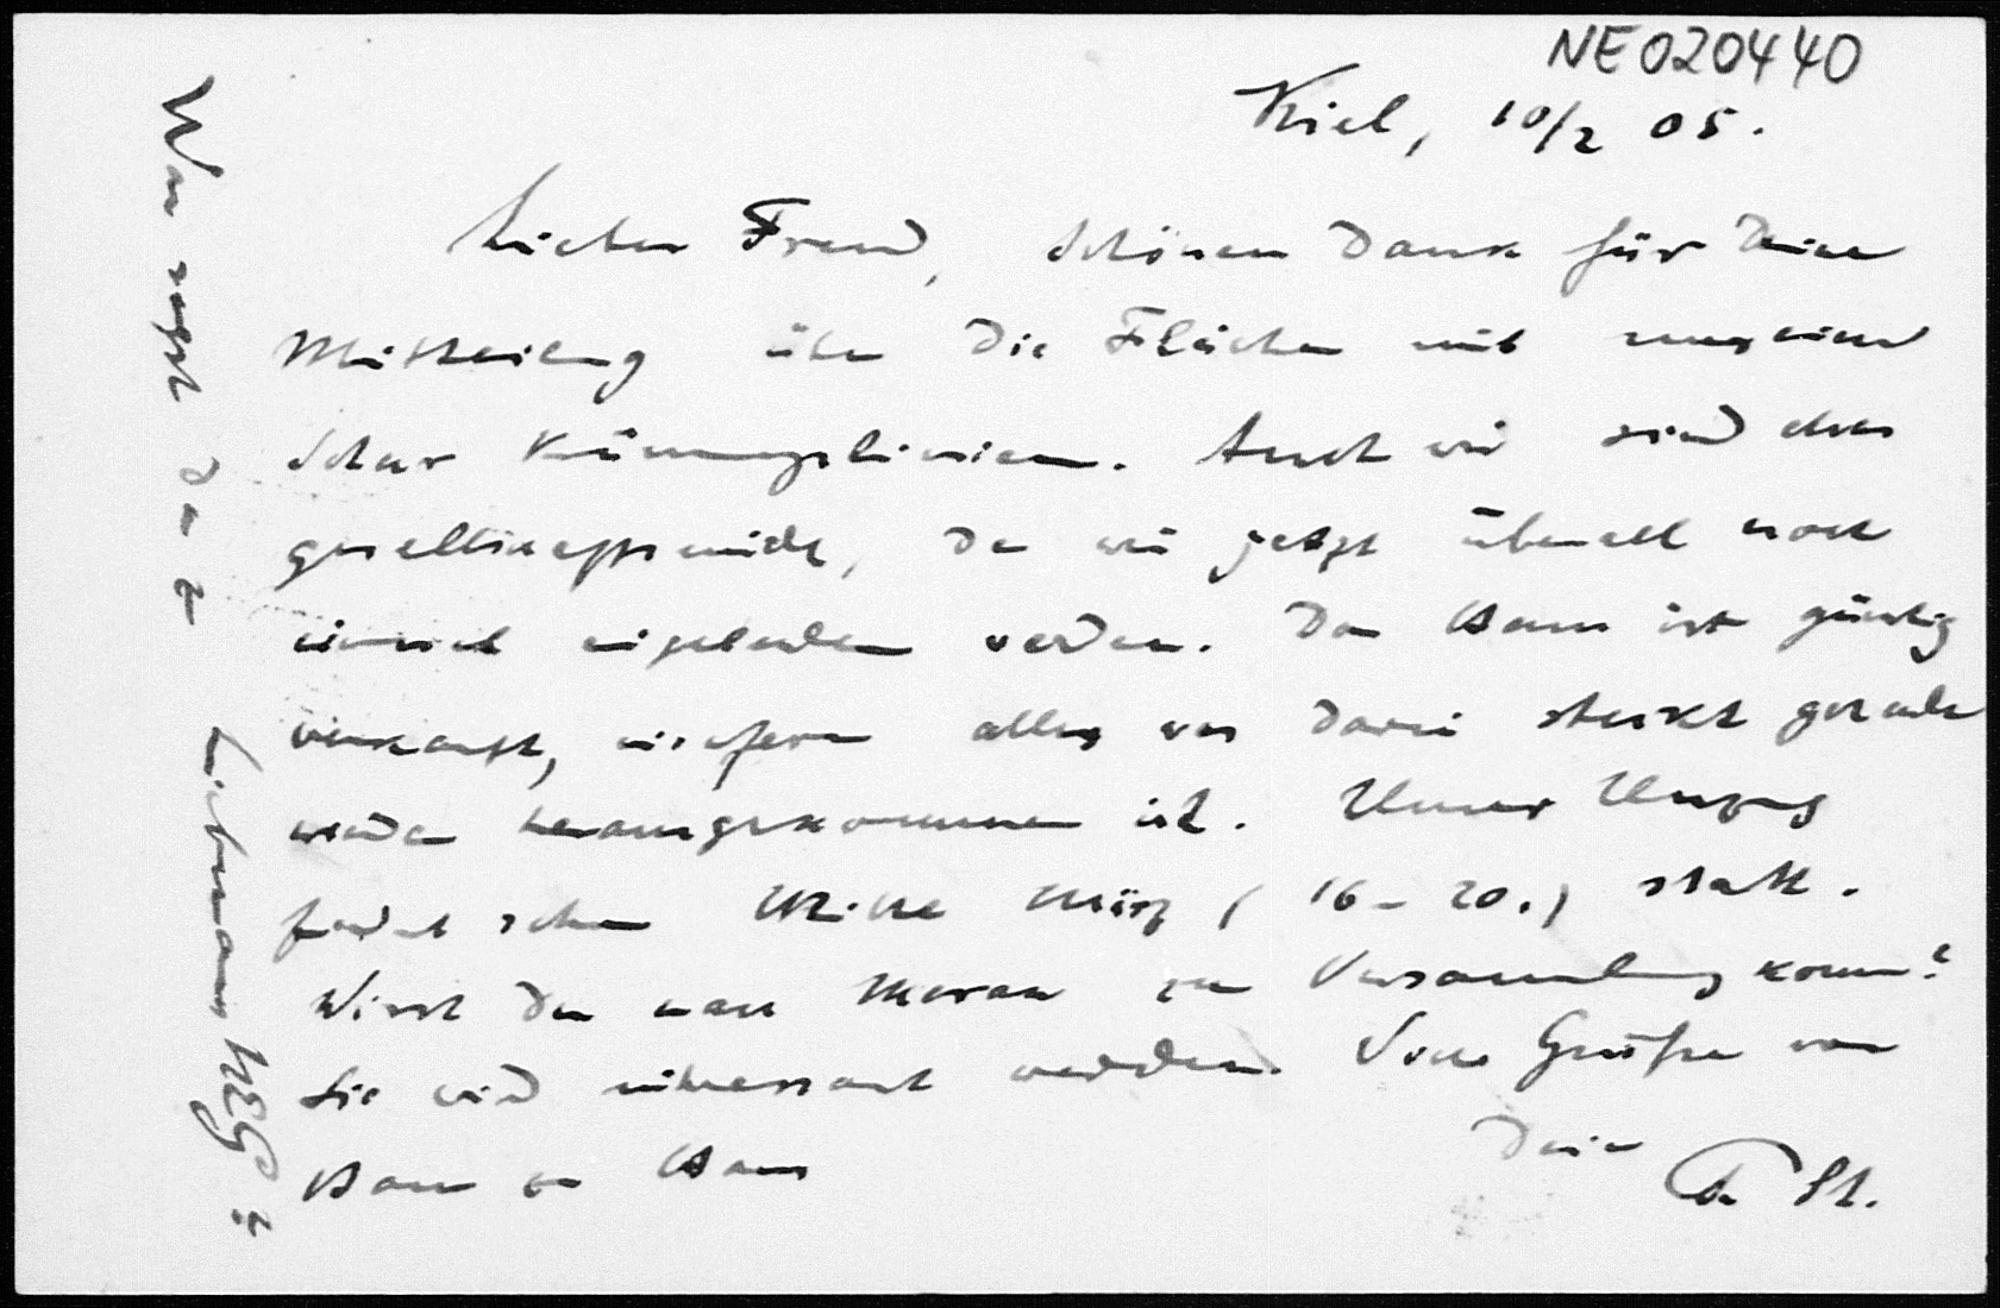 NE020440
Kiel, 10/2 05.
Lieber Freund, Schönen Dank für Deine
Mittheilung über die Flächen mit nur einer
Schar Krümmungslinien. Auch wir sind etwas
gesellschaftsmüde, da wir jetzt überall noch
einmal eingeladen werden. Das Haus ist günstig
verkauft, insofern alles was darin steckt gerade
wieder herausgekommen ist. Unser Umzug
findet schon Mitte März (16-20.) statt.
Wirst Du nach Meran zur Versammlung kommen?
Sie wird interessant werden. Viele Grüße von
Haus zu Haus
Dein
P St.
Was sagst Du zu
Liebmann NEG?